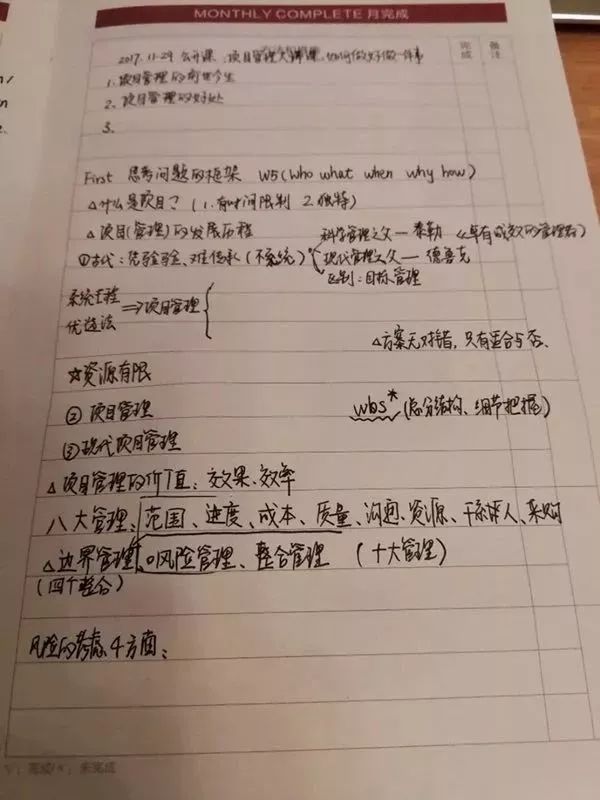 MONTHLY COMPLETE 月完成
完成 备注
2017.11.29 公开课、项目管理大讲课、如何做好做一件事
1、项目管理的前世今生
2、项目管理的好处
3、
First 思考问题的框架 W5(who what when why how)
△什么是项目?(1.有时间限制 2.独特)
△项目(管理)的发展历程
科学管理之父—泰勒 《卓有成效的管理者》
①古代:凭经验、难传承(不系统) 现代管理之父—德鲁克
区别:目标管理
系统工程
优选法 ⇒项目管理
△方案无对错,只有适合与否、
☆资源有限
②项目管理 wbs*(总分结构、细节把握)
③现代项目管理
△项目管理的价值:效果、效率
八大管理、范围、进度、成本、质量、沟通、资源、干系人、采购
△边界管理、风险管理、整合管理 (十大管理)
(四个整合)
风险的考虑4方面:
√:完成/×:未完成